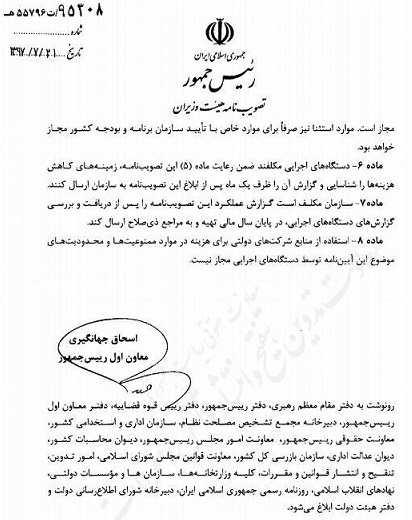 ۹۵۳۰۸/ت۵۵۷۹۶هـ
شماره
۱۳۹۷/۷/۲۱
تاریخ
جمهوری اسلامی ایران
رئیس جمهور
تصویب نامه هیئت وزیران
مجاز است. موارد استثنا نیز صرفاً برای موارد خاص با تأیید سازمان برنامه و بودجه کشور مجاز
خواهد بود.
ماده ۶- دستگاه‌های اجرایی مکلفند ضمن رعایت ماده (۵) این تصویب‌نامه، زمینه‌های کاهش
هزینه‌ها را شناسایی و گزارش آن را ظرف یک ماه پس از ابلاغ این تصویب‌نامه به سازمان ارسال کنند.
ماده ۷- سازمان مکلف است گزارش عملکرد این تصویب‌نامه را پس از دریافت و بررسی
گزارش‌های دستگاه‌های اجرایی، در پایان سال مالی تهیه و به مراجع ذی‌صلاح ارسال کند.
ماده ۸- استفاده از منابع شرکت‌های دولتی برای هزینه در موارد ممنوعیت‌ها و محدودیت‌های
موضوع این آیین‌نامه توسط دستگاه‌های اجرایی مجاز نیست.
اسحاق جهانگیری
معاون اول رییس‌جمهور
رونوشت به دفتر مقام معظم رهبری، دفتر رییس‌جمهور، دفتر رییس قوه قضاییه، دفتر معاون اول
رییس‌جمهور، دبیرخانه مجمع تشخیص مصلحت نظام، سازمان اداری و استخدامی کشور،
معاونت حقوقی رییس‌جمهور، معاونت امور مجلس رییس‌جمهور، دیوان محاسبات کشور،
دیوان عدالت اداری، سازمان بازرسی کل کشور، معاونت قوانین مجلس شورای اسلامی، امور تدوین،
تنقیح و انتشار قوانین و مقررات، کلیه وزارتخانه‌ها، سازمان ها و مؤسسات دولتی،
نهادهای انقلاب اسلامی، روزنامه رسمی جمهوری اسلامی ایران، دبیرخانه شورای اطلاع‌رسانی دولت و
دفتر هیئت دولت ابلاغ می‌شود.